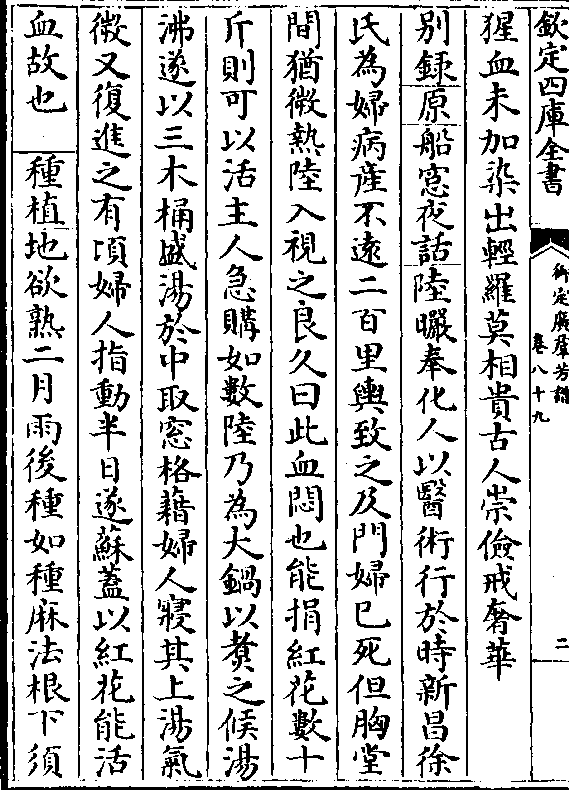 欽定四庫全書
御定廣羣芳譜
卷八十九
二
猩血未加染出輕羅莫相貴古人崇儉戒奢華
別録原船窓夜話陸曮奉化人以醫術行於時新昌徐
氏為婦病產不遠二百里輿致之及門婦已死但胸堂
間猶微熱陸入視之良久曰此血悶也能捐紅花數十
斤則可以活主人急購如數陸乃為大鍋以煑之候湯
沸遂以三木桶盛湯於中取窓格藉婦人寢其上湯氣
微又復進之有頃婦人指動半日遂蘇蓋以紅花能活
血故也　種植地欲熟二月雨後種如種麻法根下須